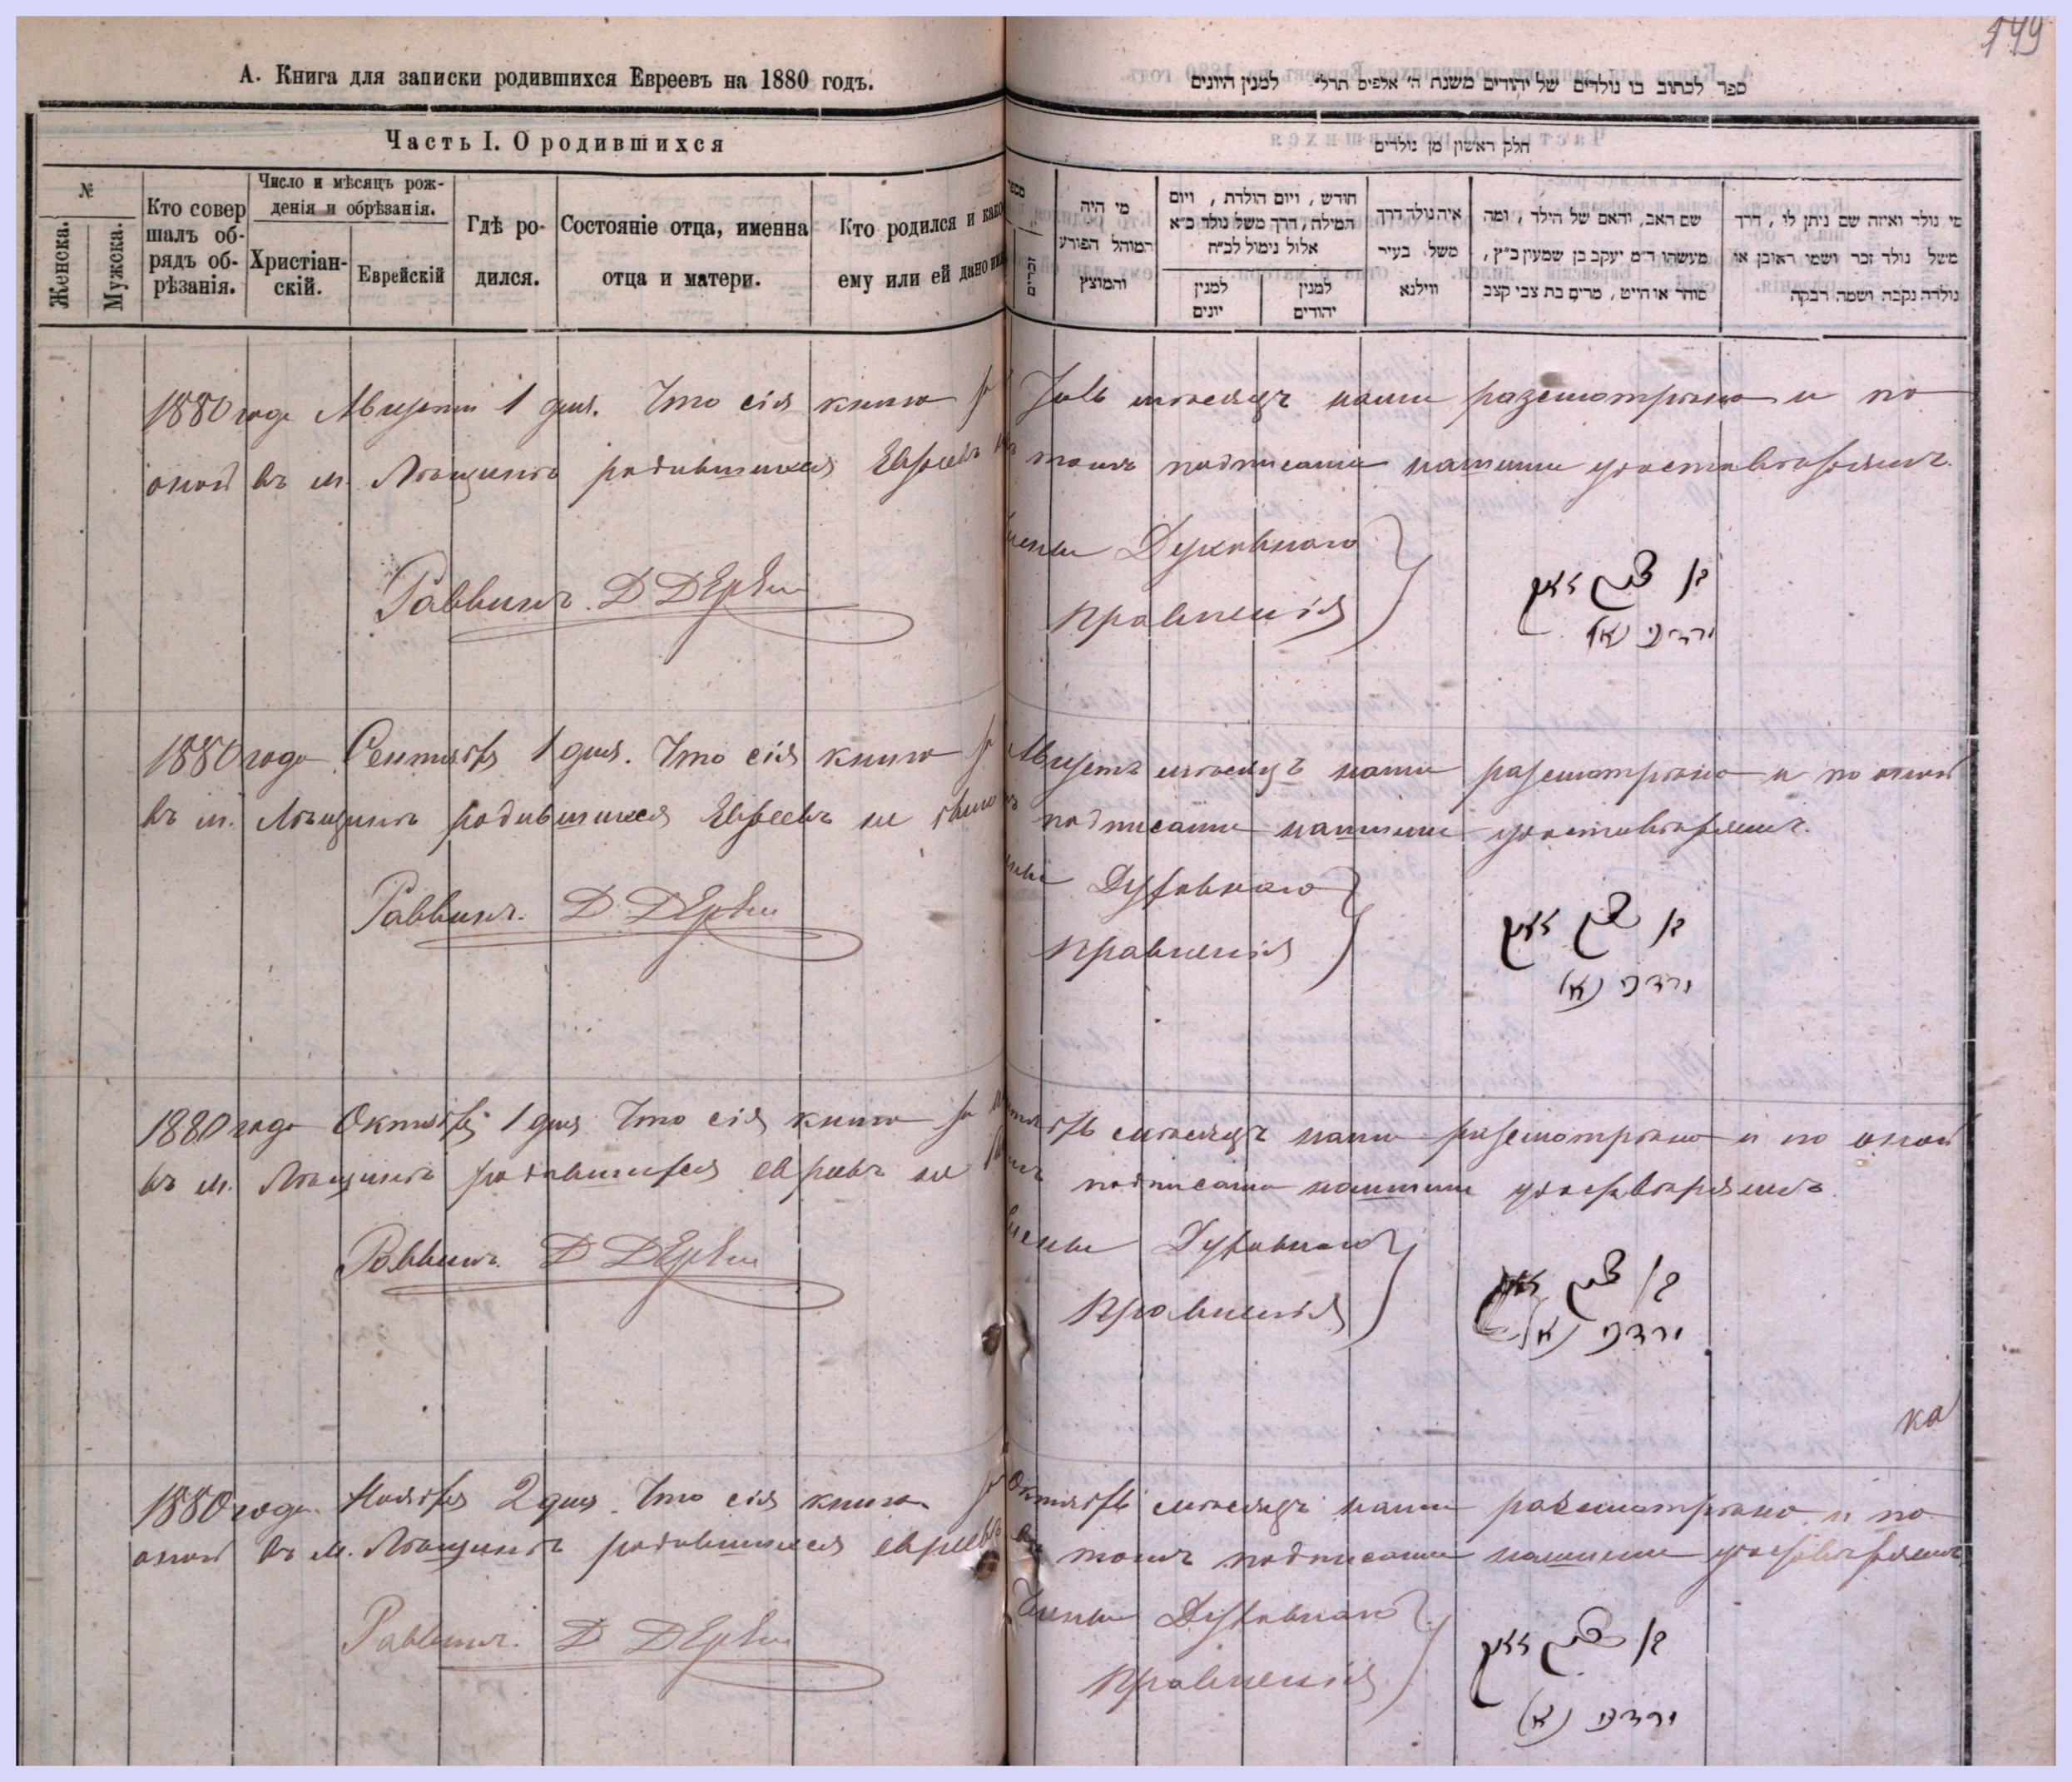 149
А. Книга для записки родившихся Евреевъ на 1880 годъ.
ספר לכתוב בו נולדים של יהודים משנת ה' אלפים תר"ל למנין היונים
Часть I. О родившихся
חלק ראשון מן נולדים
№
Женска.
Мужска.
Кто совер
шалъ об-
рядъ об-
рѣзанія.
Число и мѣсяцъ рож-
денія и обрѣзанія.
Христіан-
скій.
Еврейскій
Гдѣ ро-
дился.
Состояніе отца, именна
отца и матери.
Кто родился и како
ему или ей дано
מספר
זכרים
מי היה
המוהל הפורע
והמוצץ
חודש, ויום הולדת, ויום
המילה, דרך משל נולד כ"א
אלול נימול לכ"ח
למנין
יונים
למנין
יהודים
איה נולד דרך
משל בעיר
ווילנא
שם האב, והאם של הילד, ומה
מעשהו ד"מ יעקב בן שמעון כ"ץ,
סוחר או חייט, מרים בת צבי קצב
מי נולד ואיזה שם ניתן לו, דרך
משל נולד זכר ושמו ראובן או
נולדה נקבה ושמה רבקה
1880 года Августа 1 дня. Что сія книга за Іюль мѣсяцъ нами разсмотрѣна и по
оной въ м. родившихся Евреевъ томъ подписами нашими удостовѣряемъ.
Раввинъ Д
Члены Духовнаго
Правленія
1880 года Сентября 1 дня. Что сія книга за Августъ мѣсяцъ нами разсмотрѣна и по оной
въ м. родившихся Евреевъ не было подписами нашими удостовѣряемъ.
Раввинъ. Д
Духовнаго
Правленія
1880 года Октября 1 дня Что сія книга за мѣсяцъ нами разсмотрѣна и по оной
въ м. родившихся евреевъ не подписами нашими удостовѣряемъ
Раввинъ. Д
Члены Духовнаго
Правленія
ка
1880 года Ноября 2 дня. Что сія книга за Октябрь мѣсяцъ нами разсмотрѣна и по
оной въ м. родившихся евреевъ томъ подписами нашими удостовѣряемъ
Раввинъ. Д
Члены Духовнаго
Правленія